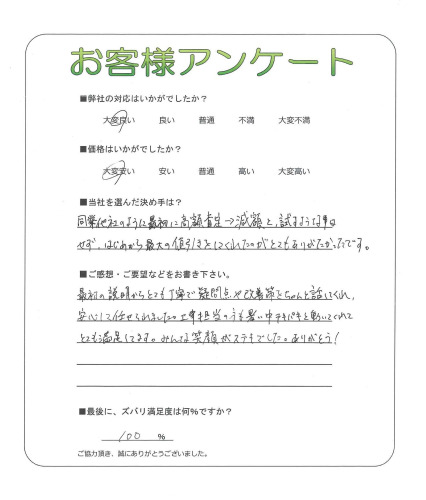 お客様アンケート
■弊社の対応はいかがでしたか？
大変良い 良い 普通 不満 大変不満
■価格はいかがでしたか？
大変安い 安い 普通 高い 大変高い
■当社を選んだ決め手は？
同業他社のように最初に高額査定→減額と、試すような事は
せず、はじめから最大の値引きをしてくれたのがとてもありがたかったです。
■ご感想・ご要望などをお書き下さい。
最初の説明からとても丁寧で疑問点や改善策をちゃんと話してくれ、
安心して任せられました。工事担当の方も暑い中テキパキと動いてくれて
とても満足してます。みんな笑顔がステキでした。ありがとう！
■最後に、ズバリ満足度は何%ですか？
100 %
ご協力頂き、誠にありがとうございました。